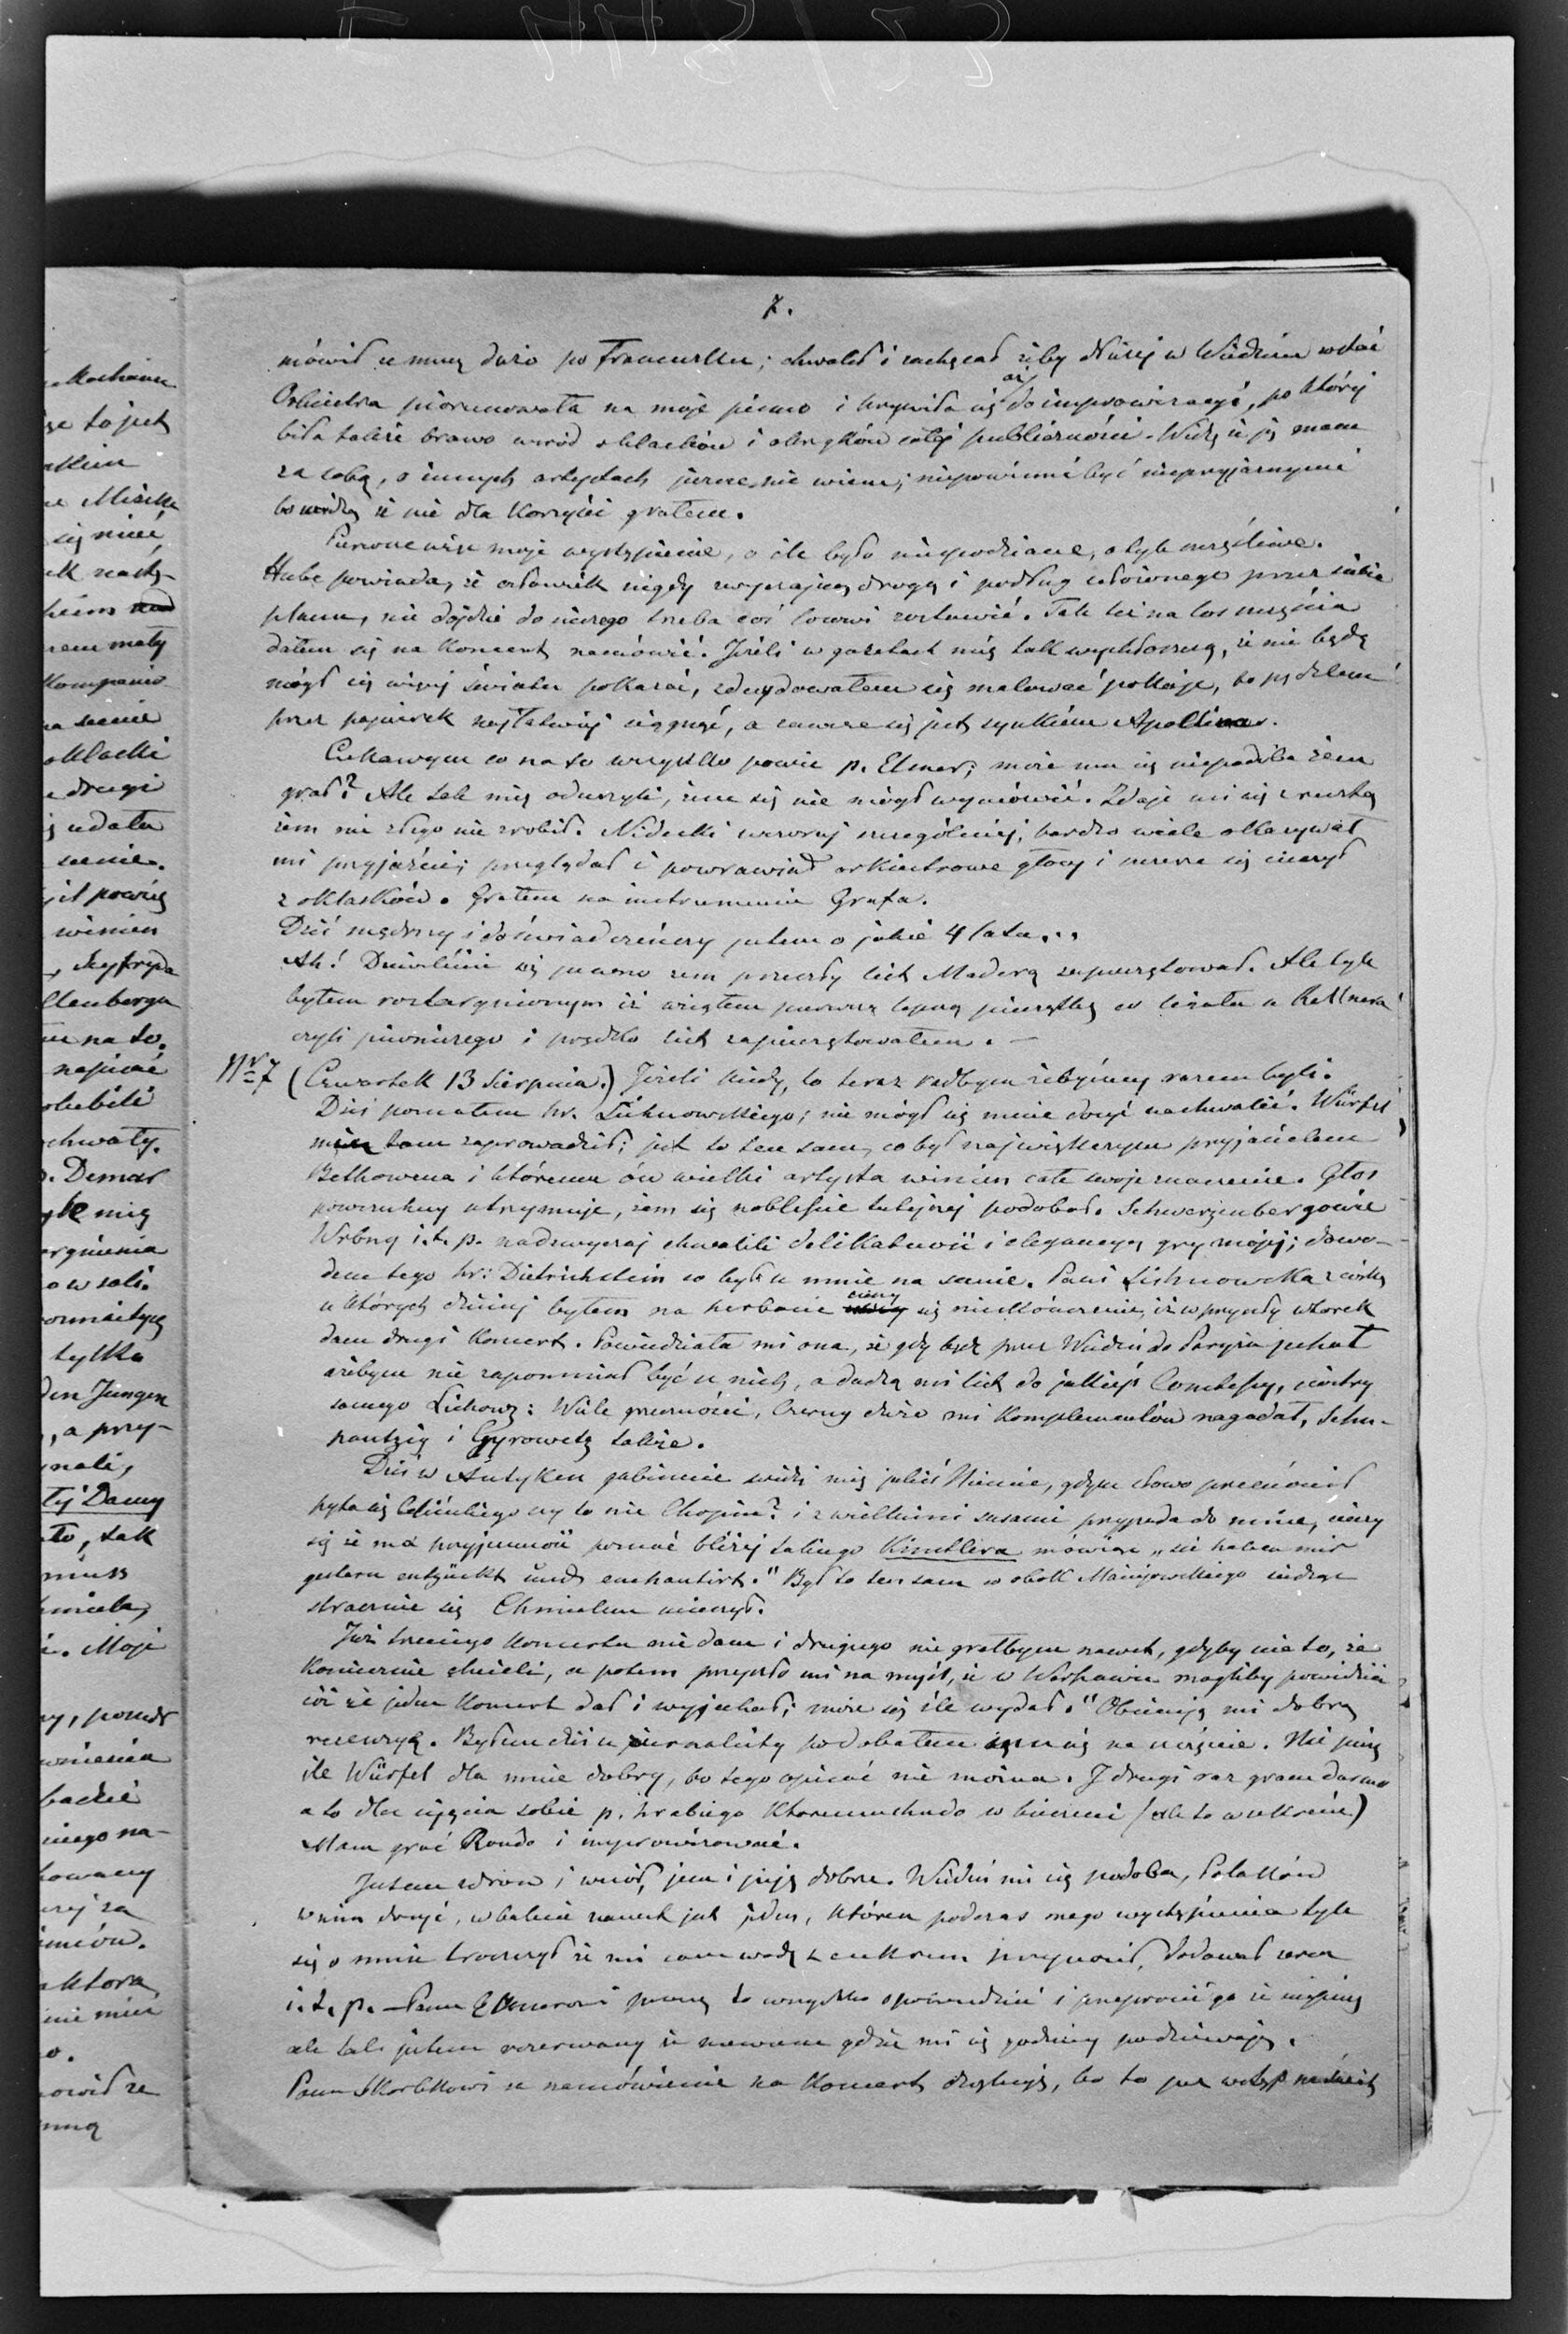 7.
mówił ze mną dużo po francusku; chwalił i zachęcał żeby dłużej w Wiedniu zostać
Orkiestra piorunowała na moje pismo i krzywiła się aż do improwizacyi, po której
biła także brawo wśród oklasków i okrzyków całej publiczności. Widzę że ją mam
za sobą, o innych artystach jeszcze nie wiem; niepowinni być nieprzyjaznymi
bo widzą że nie dla korzyści grałem.
Pierwsze więc moje wystąpienie, o ile było niespodziane, o tyle szczęśliwe.
Hube powiada, że człowiek nigdy zwyczajną drogą i podług ułożonego przez siebie
planu, nie dojdzie do niczego trzeba coś losowi zostawić. Tak też na los szczęścia
dałem się na koncert namówić. Jeżeli w gazetach mię tak wychłoszczą, że nie będę
mógł się więcej światu pokazać, zdecydowałem się malować pokoje, bo pędzlem
przez papierek najłatwiej ciągnąć, a zawsze się jest synkiem Apollina.
Ciekawym co na to wszystko powie p. Elsner; może mu się niepodoba żem
grał? Ale tak mię oduszyli, żem się nie mógł wymówić. Zdaje mi się zresztą
żem nic złego nie zrobił. Nidecki wczoraj szczególniej, bardzo wiele okazywał
mi przyjaźni; przeglądał i poprawiał orkiestrowe głosy i szczerze się cieszył
z oklasków. Grałem na instrumencie Grafa.
Dziś mędrszy i doświadczeńszy jestem o jakie 4 lata...
Ah! Dziwiliście się pewno żem przeszły list Maderą zapieczętował. Ale tyle
byłem roztargnionym iż wziąłem pierwszą lepszą pieczątkę co leżała u Kellnera
czyli piwnicznego i prędko list zapieczętowałem. —
Nr 7 (Czwartek 13 Sierpnia.) Jeżeli kiedy, to teraz radbym żebyśmy razem byli.
Dziś poznałem hr. Lichnowskiego; nie mógł się mnie dosyć nachwalić. Würfel
mię tam zaprowadził; jest to ten sam, co był największym przyjacielem
Bethowena i któremu ów wielki artysta winien całe swoje znaczenie. Głos
powszechny utrzymuje, żem się noblesie tutejszej podobał. Schwarzenbergowie
Wrbny i.t.p. nadzwyczaj chwalili delikatność i elegancyą gry mojej; dowo-
dem tego hr: Dietrichstein co był u mnie na scenie. Pani Lichnowska z córką
u których dzisiaj byłem na herbacie cieszy się nieskończenie, iż w przyszły wtorek
dam drugi koncert. Powiedziała mi ona, że gdy będę przez Wiedeń do Paryża jechał
ażebym nie zapomniał być u nich, a dadzą mi list do jakiejś Comtessy, siostry
samego Lichows: Wiele grzeczności, Czerny dużo mi komplementów nagadał, Schu-
pantzig i Gyrowetz także.
Dziś w Antyken gabinecie widzi mię jakiś Niemiec, gdym słowo przemówił
pyta się Celińskiego czy to nie Chopin? i z wielkimi susami przypada do mnie, cieszy
się że ma przyjemność poznać bliżej takiego Kinstlera mówiąc „sie haben mir
gestern entzückt und enchantirt." Był to ten sam co obok Maciejowskiego siedząc
strasznie się Chmielem cieszył.
Już trzeciego koncertu nie dam i drugiego nie grałbym nawet, gdyby nie to, że
koniecznie chcieli, a potem przyszło mi na myśl, że w Warszawie mogliby powiedzieć
cóż że jeden koncert dał i wyjechał; może się źle wydał." Obiecują mi dobrą
recenzyą. Byłem dziś u żurnalisty podobałem mu się na szczęście. Nie piszę
ile Würfel dla mnie dobry, bo tego opisać nie można. I drugi raz gram darmo
a to dla ujęcia sobie p. hrabiego któremu chudo w kieszeni (ale to w sekrecie)
Mam grać Rondo i improwizować.
Jestem zdrów i wesół, jem i piję dobrze. Wiedeń mi się podoba, Polaków
w nim dosyć, w balecie nawet jest jeden, który podczas mego wystąpienia tyle
się o mnie troszczył że mi sam wodę z cukrem przynosił, dodawał serca
i.t.p. — Panu Elsnerowi proszę to wszystko opowiedzieć i przeprosić go że niepiszę
ale tak jestem rozerwany że niewiem gdzie mi się godziny podziewają.
Panu Skarbkowi za namówienie na koncert dziękuję, bo to już wstęp na świat